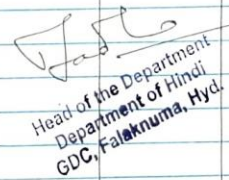 Head of the Department
Department of Hindi
GDC, Falaknuma, Hyd.